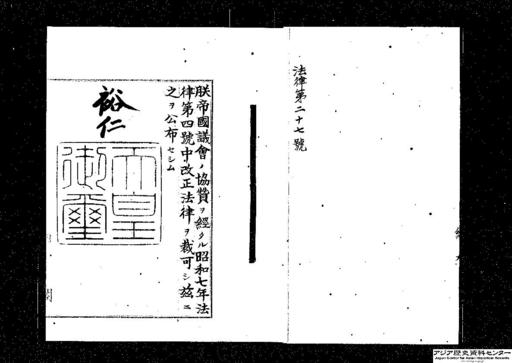 法律第二十七號
朕帝國議會ノ協贊ヲ經タル昭和七年法
律第四號中改正法律ヲ裁可シ茲ニ
之ヲ公布セシム
裕仁
天皇
御璽
アジア歴史資料センター
Japan Center for Asian Historical Records